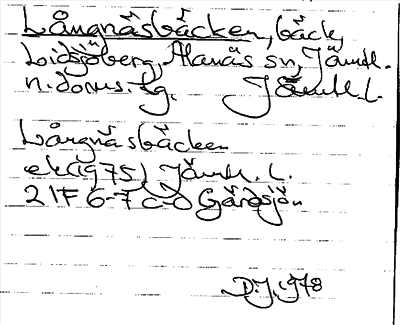 Långnäsbäcken, bäck,
Lidsjöberg, Alanäs sn, Jämtl.
n. doms. sg. Jämtl.l.
Långnäsbäcken
ek (1975) Jämtl. l.
21F 6-7 c-d Gärdsjön
D.J. 1978